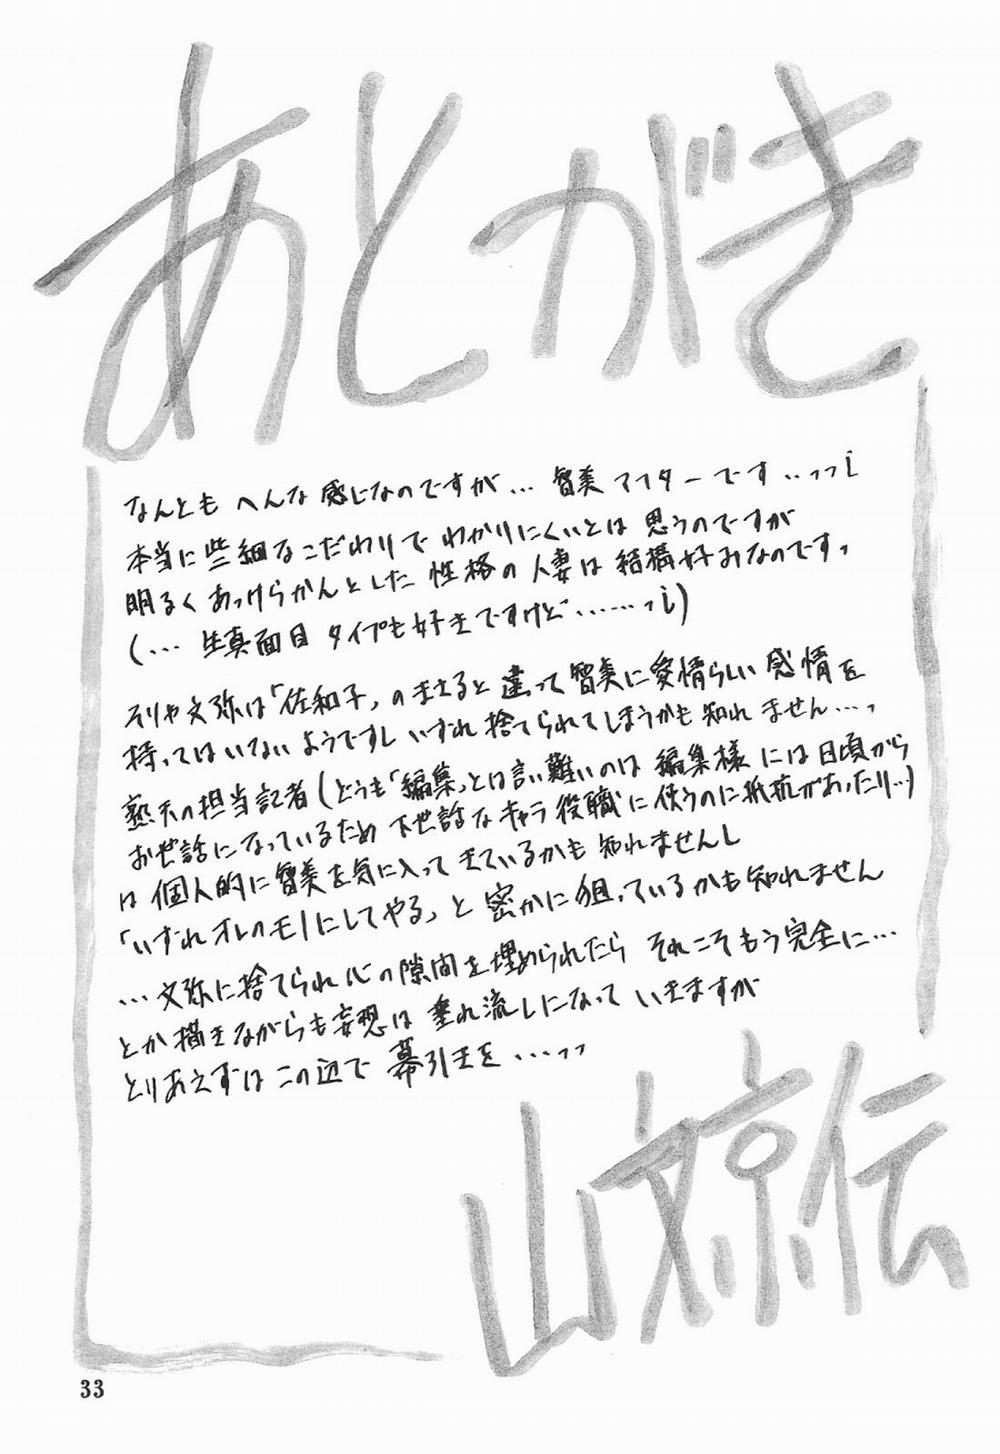 あとがき
なんとも へんな 感じなのですが… 智美アフターです…っっi
本当に些細なこだわりで わかりにくいとは 思うのですが
明るく あっけらかんとした 性格の 人妻は 結構好みなのです，
(… 生真面目 タイプも 好きですけど……っi)
そりゃ文弥は「佐和子」の まさると 違って 智美に愛情らしい 感情を
持ってはいないようですし いずれ 捨てられてしまうかも 知れ ません…，
熟天の担当記者(どうも「編集」とは言い難いのは 編集様 には 日頃から
お世話になっているため 下世話な キャラ 役職に 使うのに抵抗があったり…)
は 個人的に 智美を気に入って きているかも 知れませんし
「いずれ オレのモノにしてやる」と 密かに狙っているかも知れません
… 文弥に捨てられ 心の隙間を埋められたら それこそもう完全に…
とか 描きながらも妄想は 垂れ流しになって いきますが
とりあえずは この辺で 幕引きを …っっ
山文京伝
33